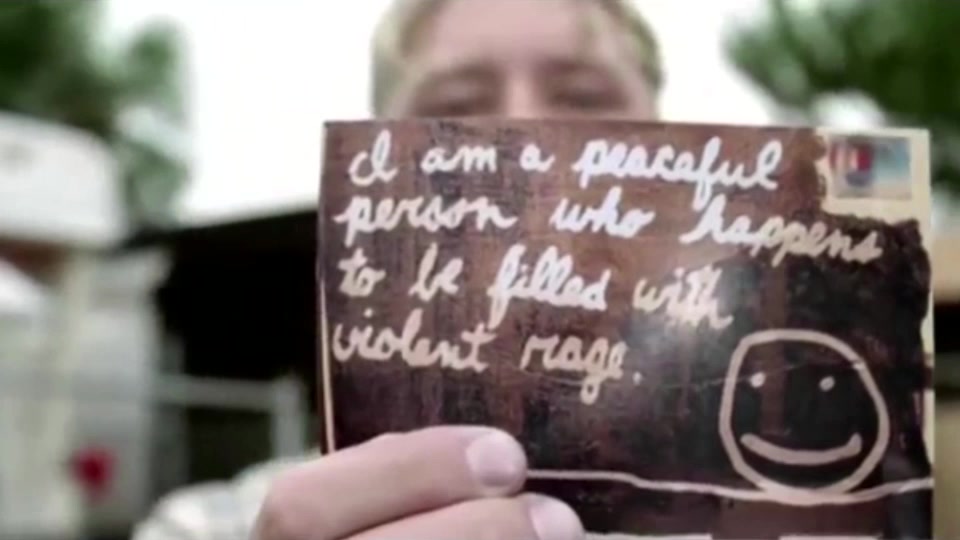 I am a peaceful
person who happens
to be filled with
violent rage.